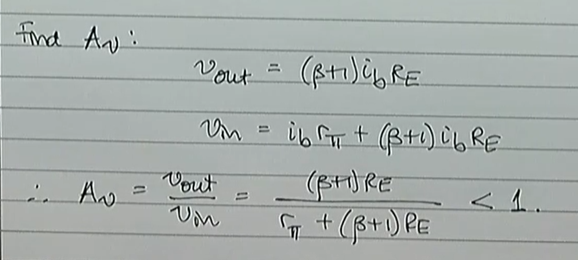 Find Av :
vout = (β+1) ib RE
vin = ib rπ + (β+1) ib RE
∴ Av = vout/vin = (β+1) RE / rπ + (β+1) RE < 1.